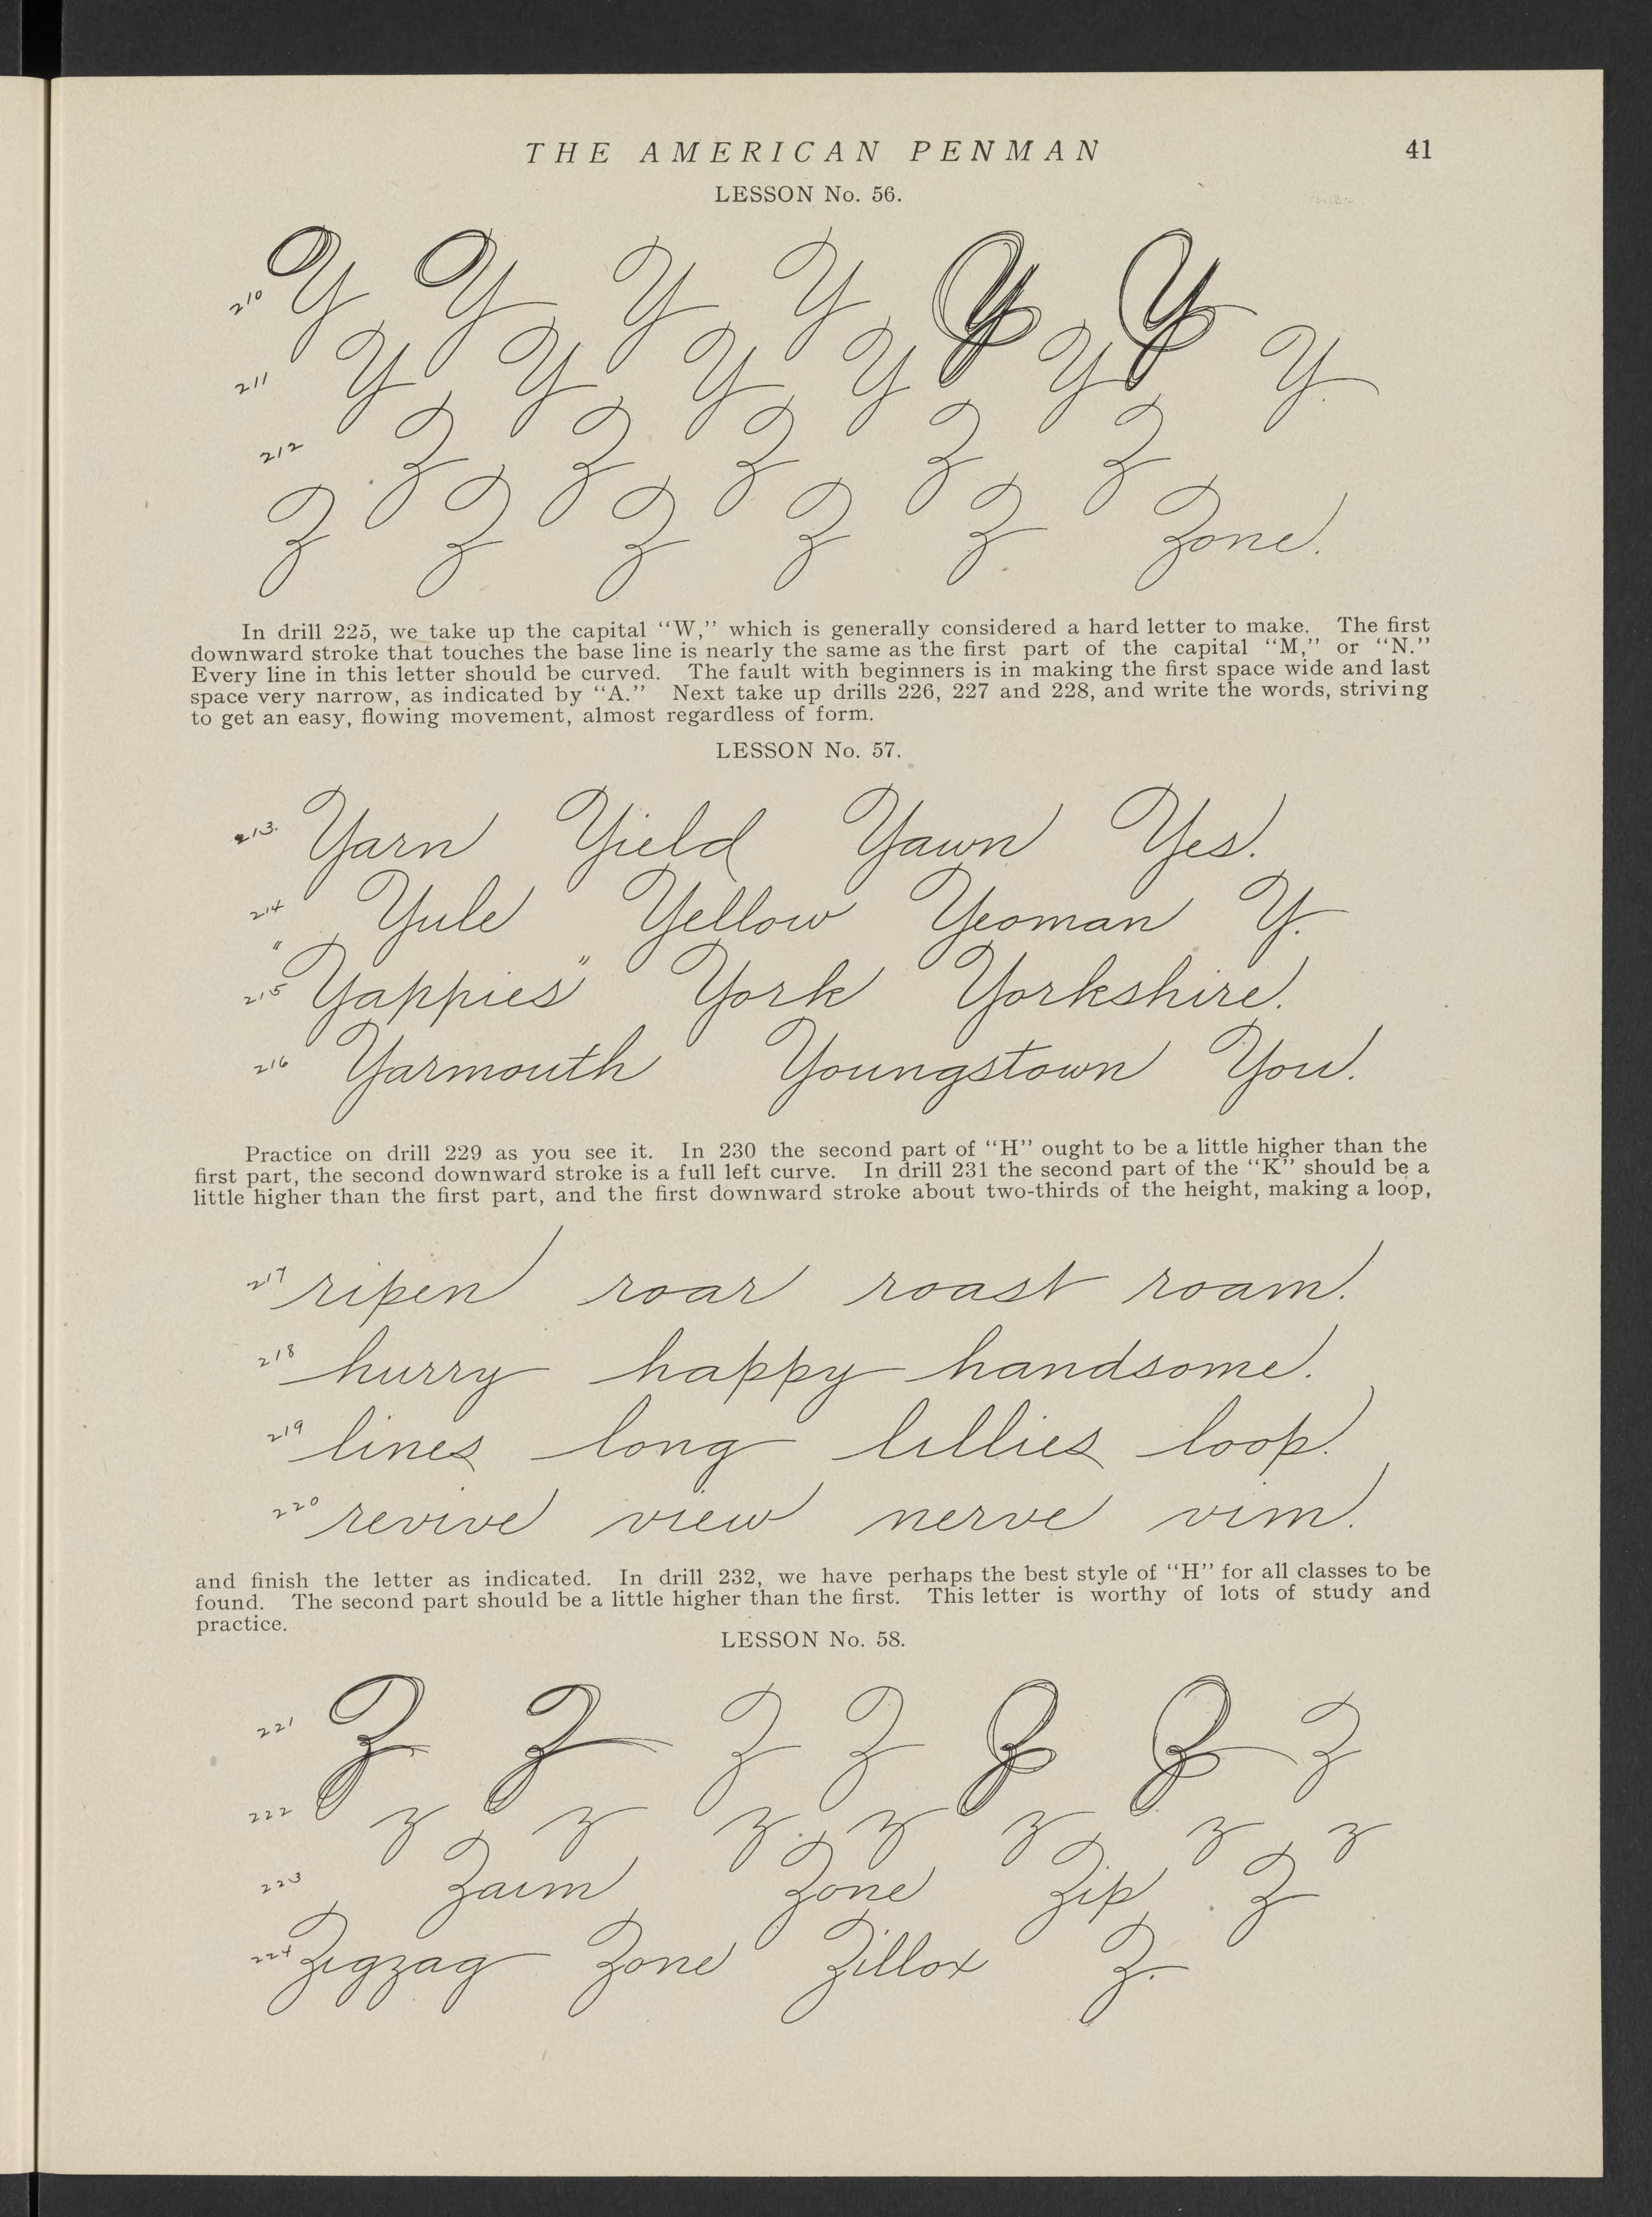 THE AMERICAN PENMAN 41
LESSON No. 56.
210 Y Y Y Y Y Y
211 Y Y Y Y Y Y
212 Z Z Z Z Z
Z Z Z Z Z Zone.
In drill 225, we take up the capital “W,” which is generally considered a hard letter to make. The first
downward stroke that touches the base line is nearly the same as the first part of the capital “M,” or “N.”
Every line in this letter should be curved. The fault with beginners is in making the first space wide and last
space very narrow, as indicated by “A.” Next take up drills 226, 227 and 228, and write the words, striving
to get an easy, flowing movement, almost regardless of form.
LESSON No. 57.
213. Yarn Yield Yawn Yes.
214 Yule Yellow Yeoman Y.
215 "Yappies" York Yorkshire.
216 Yarmouth Youngstown You.
Practice on drill 229 as you see it. In 230 the second part of “H” ought to be a little higher than the
first part, the second downward stroke is a full left curve. In drill 231 the second part of the “K” should be a
little higher than the first part, and the first downward stroke about two-thirds of the height, making a loop,
217 ripen roar roast roam.
218 hurry happy handsome.
219 lines long lillies loop.
220 revive view nerve vim.
and finish the letter as indicated. In drill 232, we have perhaps the best style of “H” for all classes to be
found. The second part should be a little higher than the first. This letter is worthy of lots of study and
practice.
LESSON No. 58.
221 Z Z Z Z Z Z Z
222 z z z z z z z
223 Zaim Zone Zip Z
224 Zigzag Zone Zillox Z.